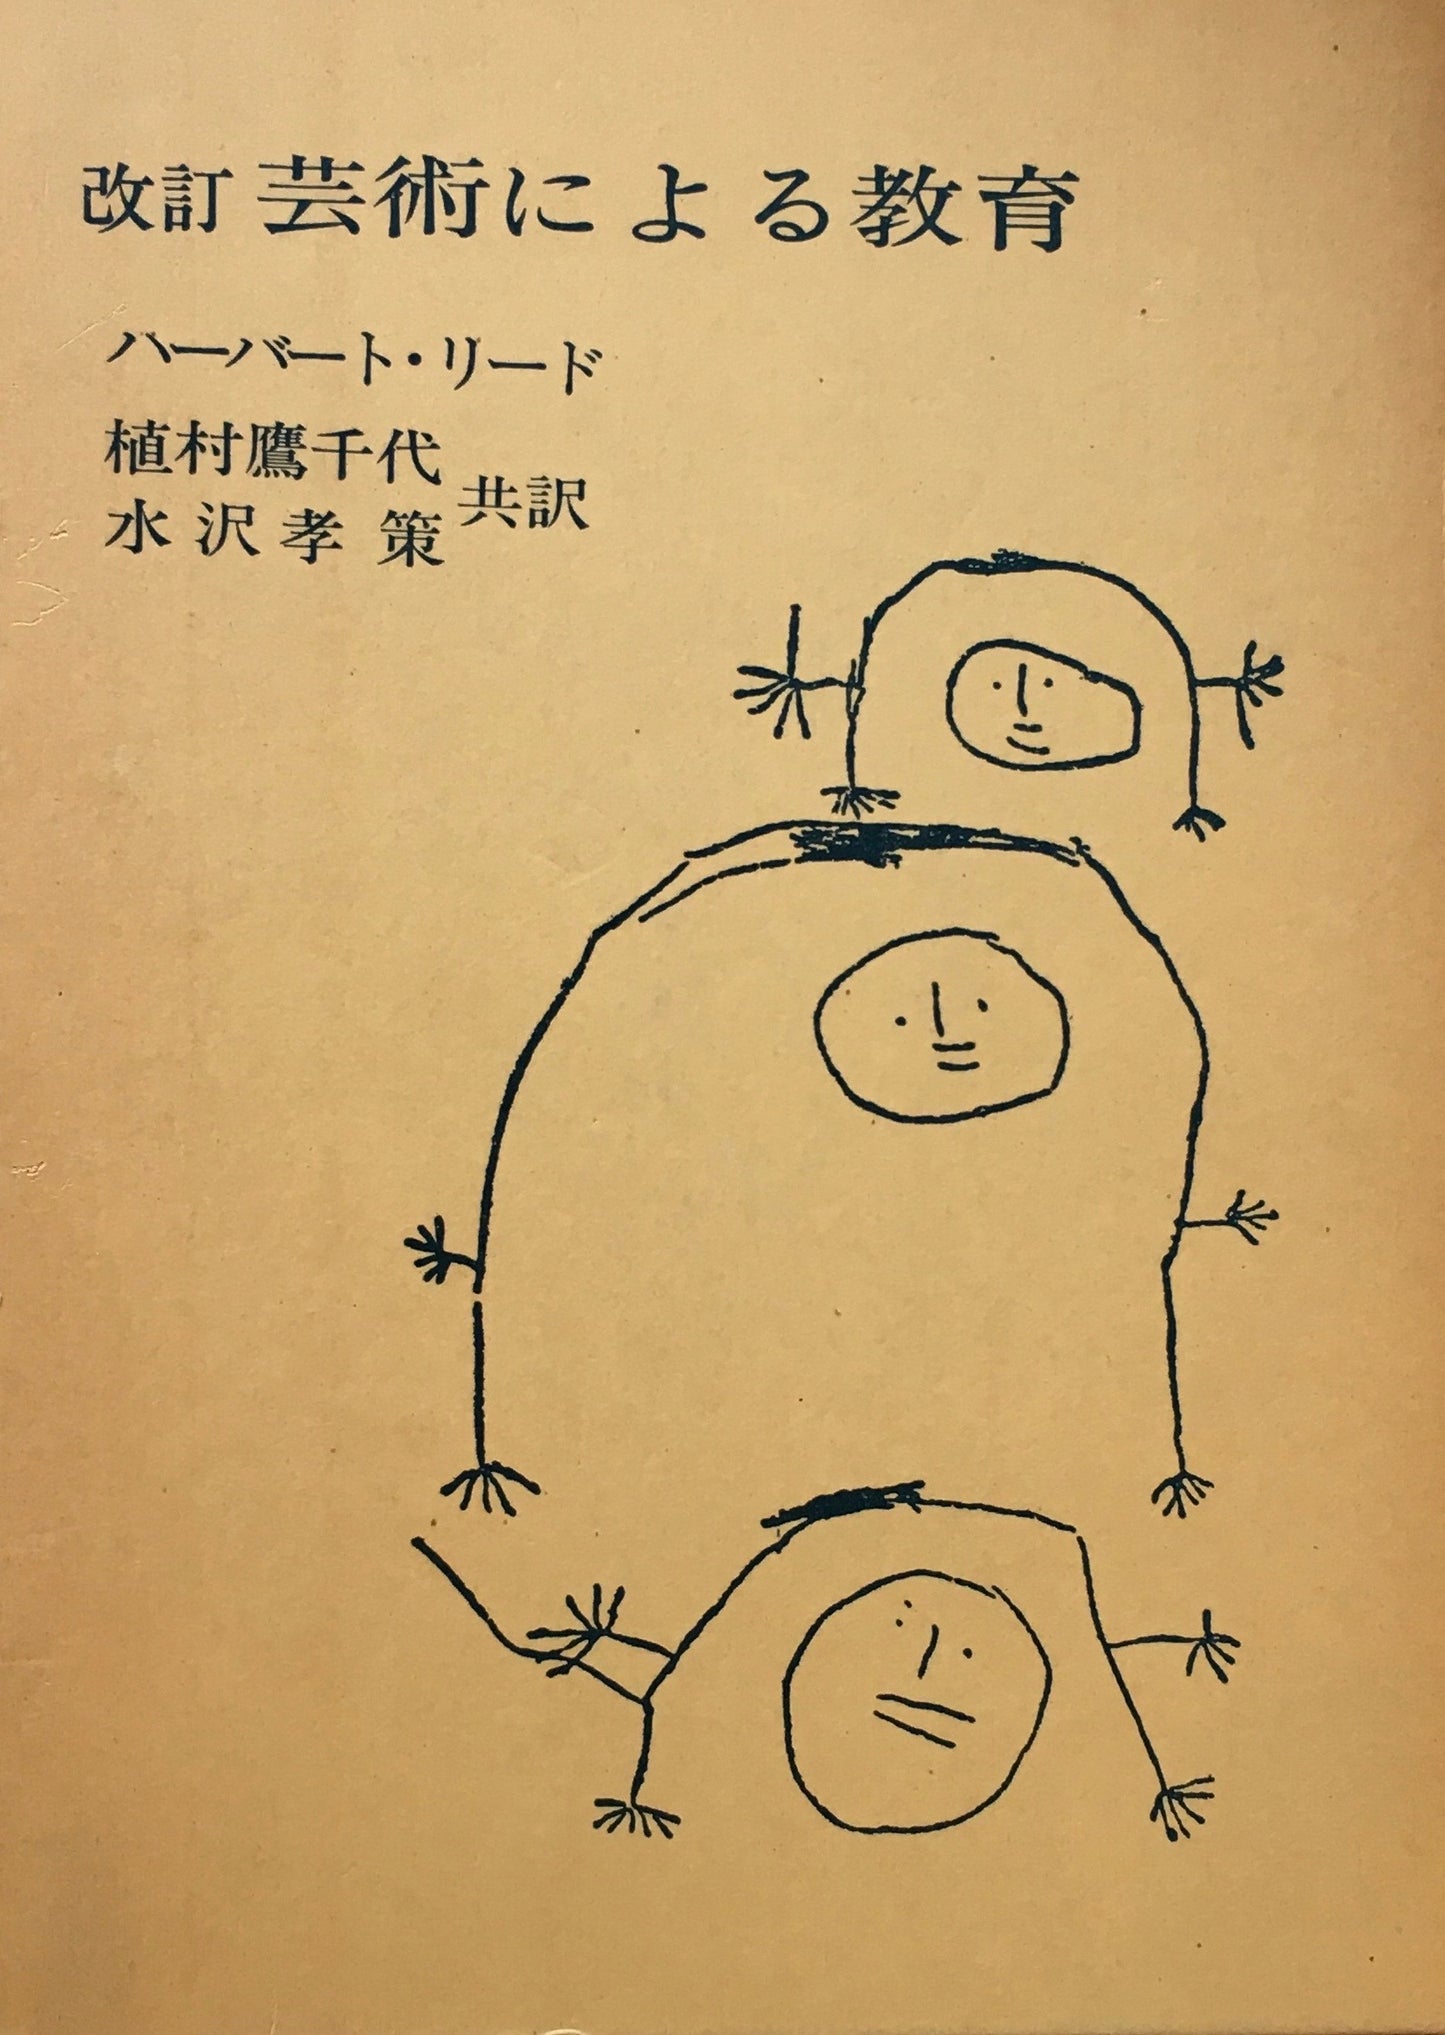 改訂 芸術による教育
ハーバート・リード
植村鷹千代
水沢孝策 共訳